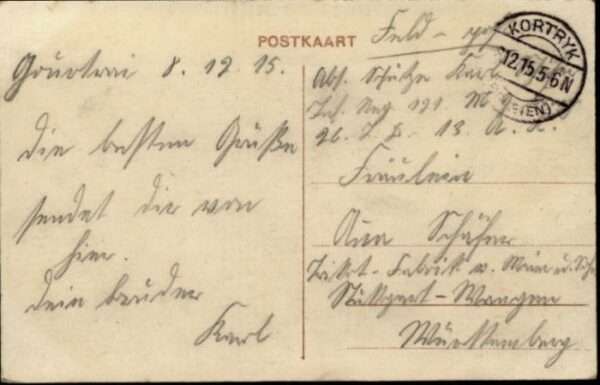 POSTKAART
Feld-
KORTRYK
12.15.5-6N
Courtrai 8.12.15.
Die besten Grüße
sendet dir von
hier.
Dein bruder
Karl
Abs. Schütze Karl
Inf. Reg. 121. M.
26. I. D. 13. A. K.
Fräulein
Schäfer
Trikot-Fabrik v.
Stuttgart-Wangen
Württemberg